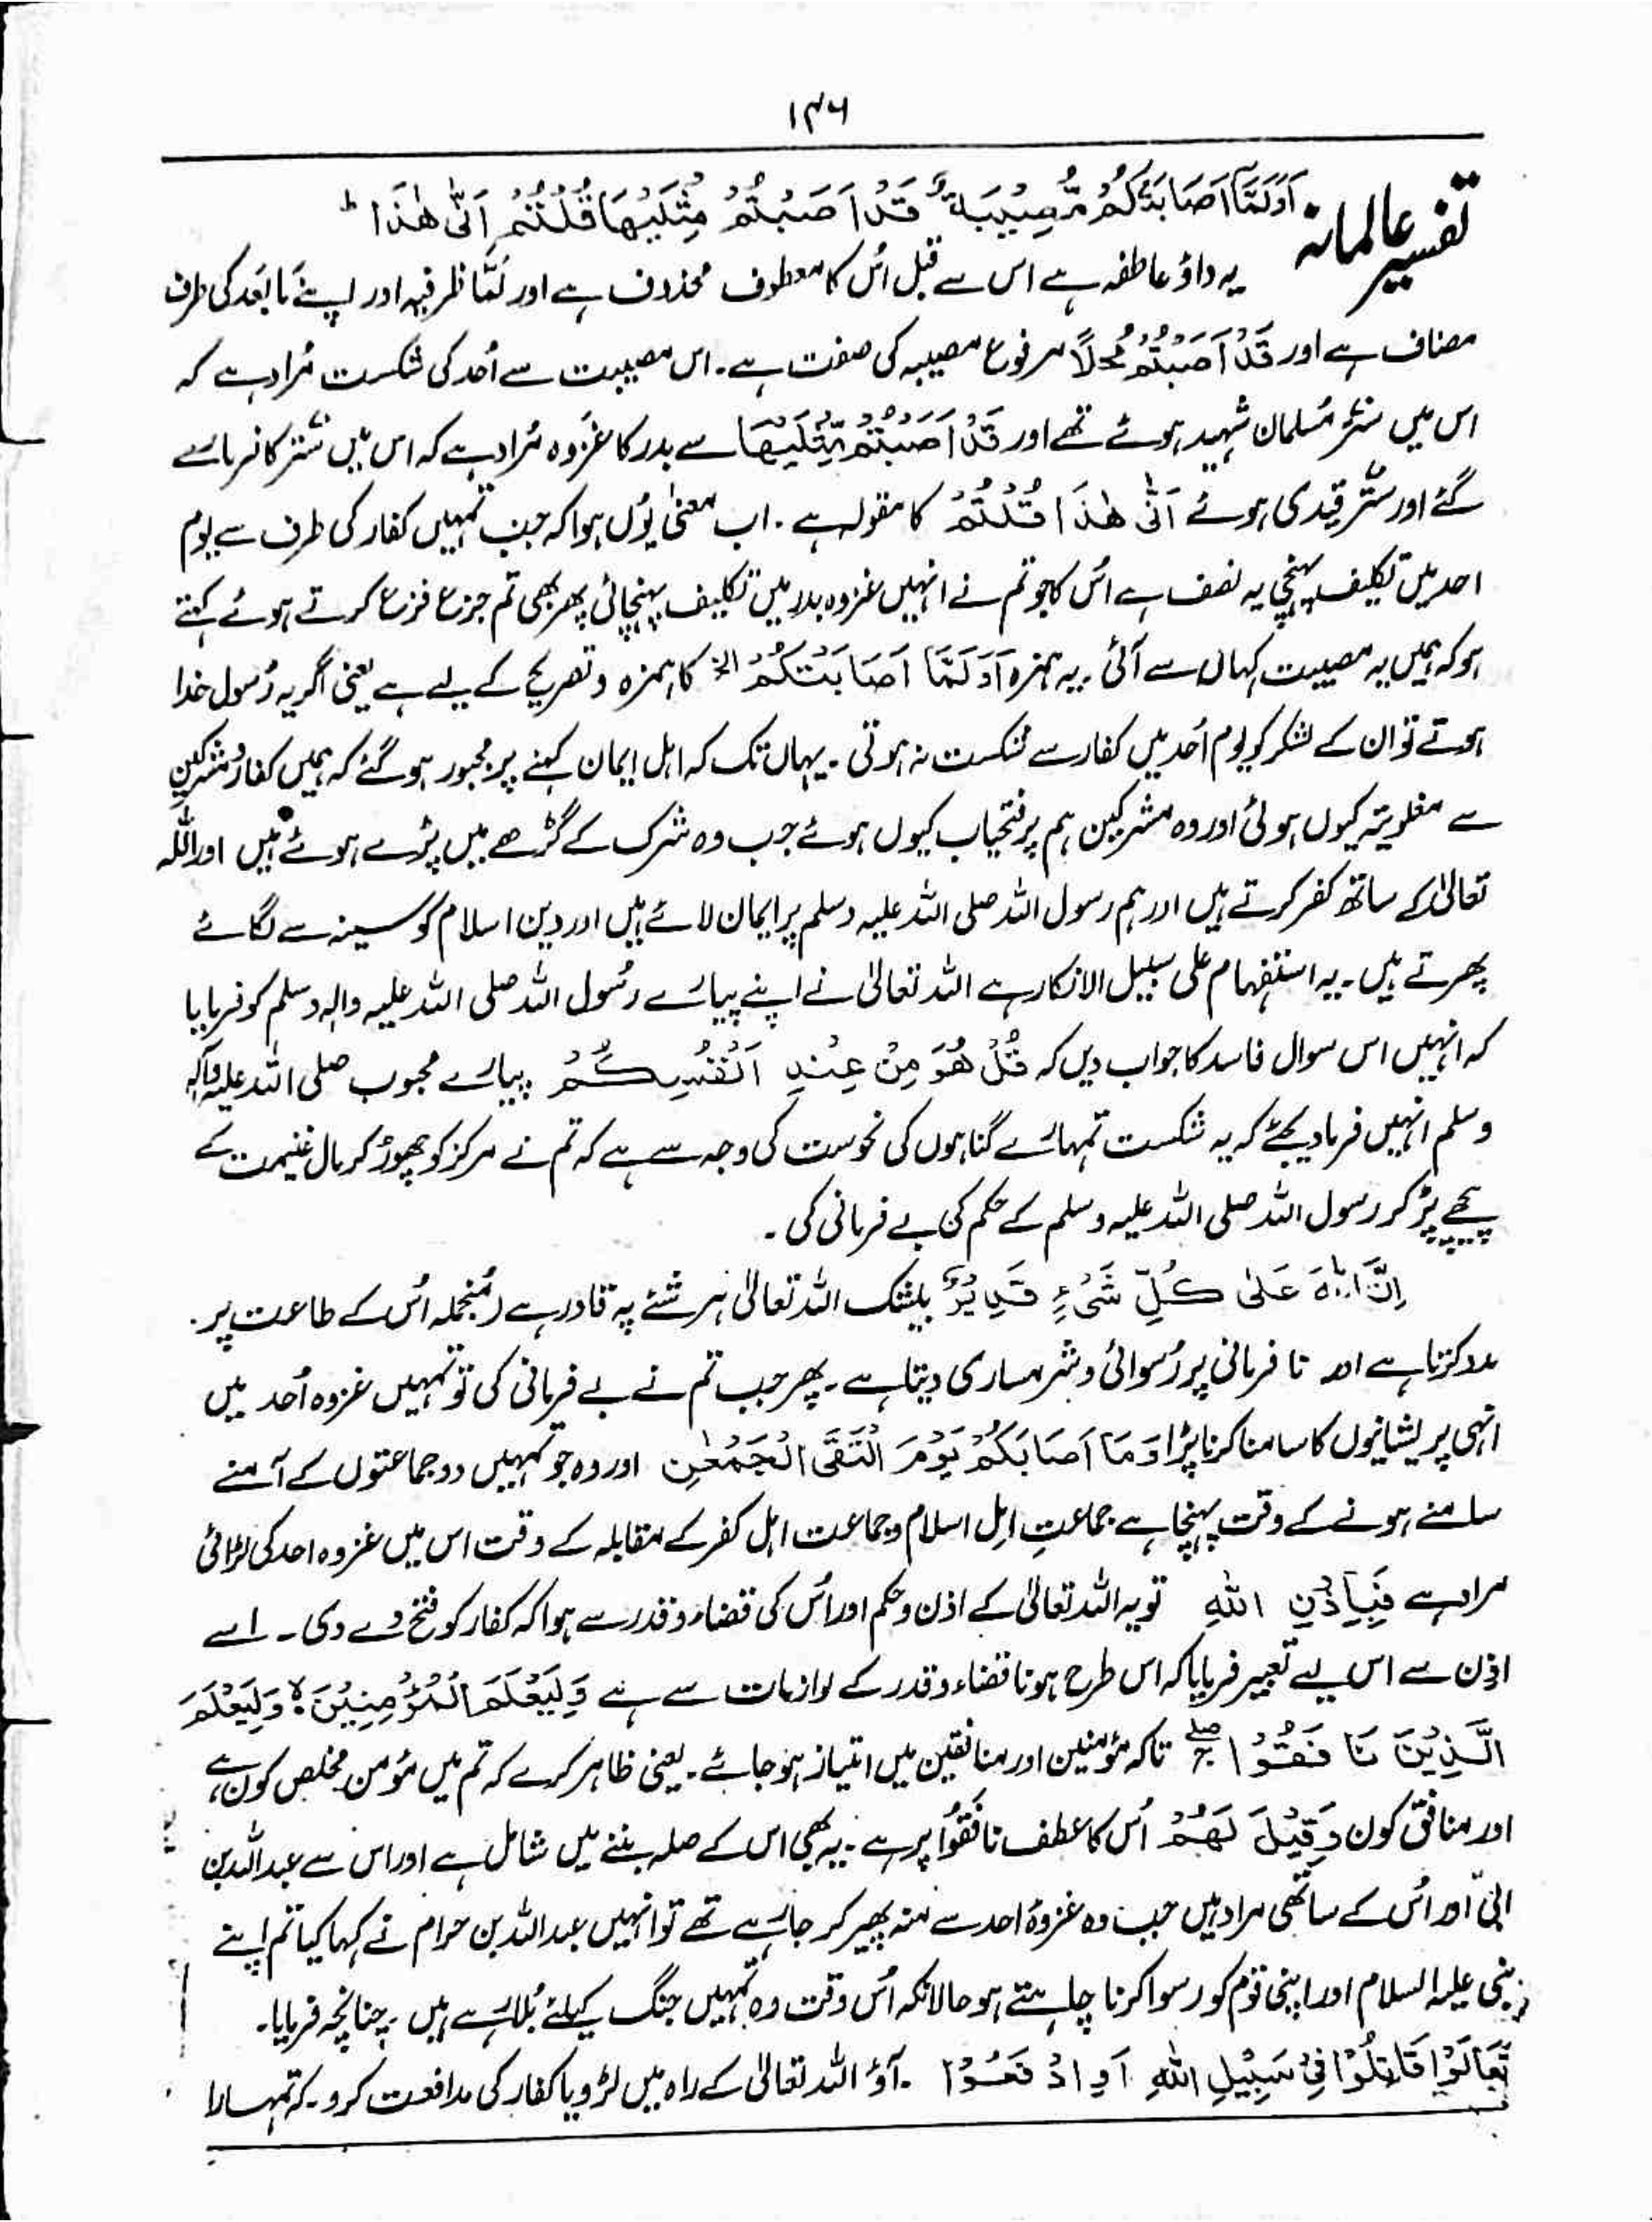 ۱۴۶
تفسیر عالمانہ
اَوَلَمَّاۤ اَصَابَتْكُمْ مُّصِیْبَةٌ قَدْ اَصَبْتُمْ مِّثْلَیْهَا قُلْتُمْ اَنّٰی هٰذَا ؕ
یہ واؤ عاطفہ ہے اس سے قبل اُس کا معطوف محذوف ہے اور لَمَّا ظرفیہ اور اپنے مَا بَعَد کی طرف
مضاف ہے اور قَدْ اَصَبْتُمْ مُحلاً مرفوع مصیبہ کی صفت ہے۔ اس مصیبت سے اُحد کی شکست مُراد ہے کہ
اس میں ستّر مُسلمان شہید ہوئے تھے اور قَدْ اَصَبْتُمْ مِّثْلَیْهَا سے بدر کا غزوہ مُراد ہے کہ اس میں ستّر کافر مارے
گئے اور ستّر قیدی ہوئے اَنّٰی هٰذَا قُلْتُمْ کا مقولہ ہے۔ اب معنیٰ یوُں ہوا کہ جب تمہیں کفار کی طرف سے یوم
احد میں تکلیف پہنچی یہ نصف ہے اُس کا جو تم نے انہیں غزوہ بدر میں تکلیف پہنچائی پھر بھی تم جزع فزع کرتے ہوئے کہتے
ہو کہ ہمیں یہ مصیبت کہاں سے آئی۔ یہ ہمزہ اَوَلَمَّا اَصَابَتْكُمْ الخ کا ہمزہ و تصریح کے لیے ہے یعنی اگر یہ رُسول خدا
ہوتے تو ان کے لشکر کو یوم اُحد میں کفار سے شکست نہ ہوتی۔ یہاں تک کہ اہل ایمان کہنے پر مجبور ہو گئے کہ ہمیں کفار و مشرکین
سے مغلوبیّتہ کیوں ہوئی اور وہ مشرکین ہم پر فتحیاب کیوں ہوئے جب وہ شرک کے گڑھے میں پڑے ہوئے ہیں اور اللّٰہ
تعالیٰ کے ساتھ کفر کرتے ہیں اور ہم رسول اللہ صلی اللہ علیہ وسلم پر ایمان لائے ہیں اور دین اسلام کو سینہ سے لگائے
پھرتے ہیں۔ یہ استفہام علی سبیل الانکار ہے اللہ تعالیٰ نے اپنے پیارے رسُول اللہ صلی اللہ علیہ والہ وسلم کو فرمایا
کہ انہیں اس سوال فاسد کا جواب دیں کہ قُلْ هُوَ مِنْ عِنْدِ اَنْفُسِكُمْ پیارے محبوب صلی اللہ علیہ وآلہ
وسلم انہیں فرما دیجئے کہ یہ شکست تمہارے گناہوں کی نحوست کی وجہ سے ہے کہ تم نے مرکز کو چھوڑ کر مال غنیمت کے
پیچھے پڑ کر رسول اللہ صلی اللہ علیہ وسلم کے حکم کی بے فرمانی کی۔
اِنَّ اللّٰهَ عَلٰی كُلِّ شَیْءٍ قَدِیْرٌ بیشک اللہ تعالیٰ ہر شئے پہ قادر ہے مُنجملہ اُس کے طاعت پر
مدد کرتا ہے اور نا فرمانی پر رُسوائی و شرمساری دیتا ہے۔ پھر جب تم نے بے فرمانی کی تو تمہیں غزوہ اُحد میں
انہی پریشانیوں کا سامنا کرنا پڑا وَمَاۤ اَصَابَكُمْ یَوْمَ الْتَقَی الْجَمْعٰنِ اور وہ جو تمہیں دو جماعتوں کے آمنے
سامنے ہونے کے وقت پہنچا ہے جماعتِ اہل اسلام و جماعت اہل کفر کے مقابلہ کے وقت اس میں غزوہ احد کی لڑائی
مراد ہے فَبِاِذْنِ اللّٰهِ تو یہ اللہ تعالیٰ کے اذن و حکم اور اُس کی قضاء و قدر سے ہوا کہ کفار کو فتح دے دی۔ اسے
اذن سے اس لیے تعبیر فرمایا کہ اس طرح ہونا قضاء و قدر کے لوازمات سے ہے وَلِیَعْلَمَ الْمُؤْمِنِیْنَ ۙ وَلِیَعْلَمَ
الَّذِیْنَ نَافَقُوْا تاکہ مؤمنین اور منافقین میں امتیاز ہو جائے۔ یعنی ظاہر کرے کہ تم میں مؤمن مخلص کون ہے
اور منافق کون وَقِیْلَ لَهُمْ اُس کا عطف نافَقُوا پر ہے۔ یہ بھی اس کے صلہ بننے میں شامل ہے اور اس سے عبداللہ بن
ابیّ اور اُس کے ساتھی مراد ہیں جب وہ غزوۂ احد سے منہ پھیر کر جا رہے تھے تو انہیں عبداللہ بن حرام نے کہا کیا تم اپنے
نبی علیہ السلام اور اپنی قوم کو رسوا کرنا چاہتے ہو حالانکہ اُس وقت وہ تمہیں جنگ کیلئے بُلا رہے ہیں۔ چنانچہ فرمایا۔
تَعَالَوْا قَاتِلُوْا فِیْ سَبِیْلِ اللّٰهِ اَوِ ادْفَعُوْا۔ آؤ اللہ تعالیٰ کے راہ میں لڑو یا کفار کی مدافعت کرو۔ کہ تمہارا